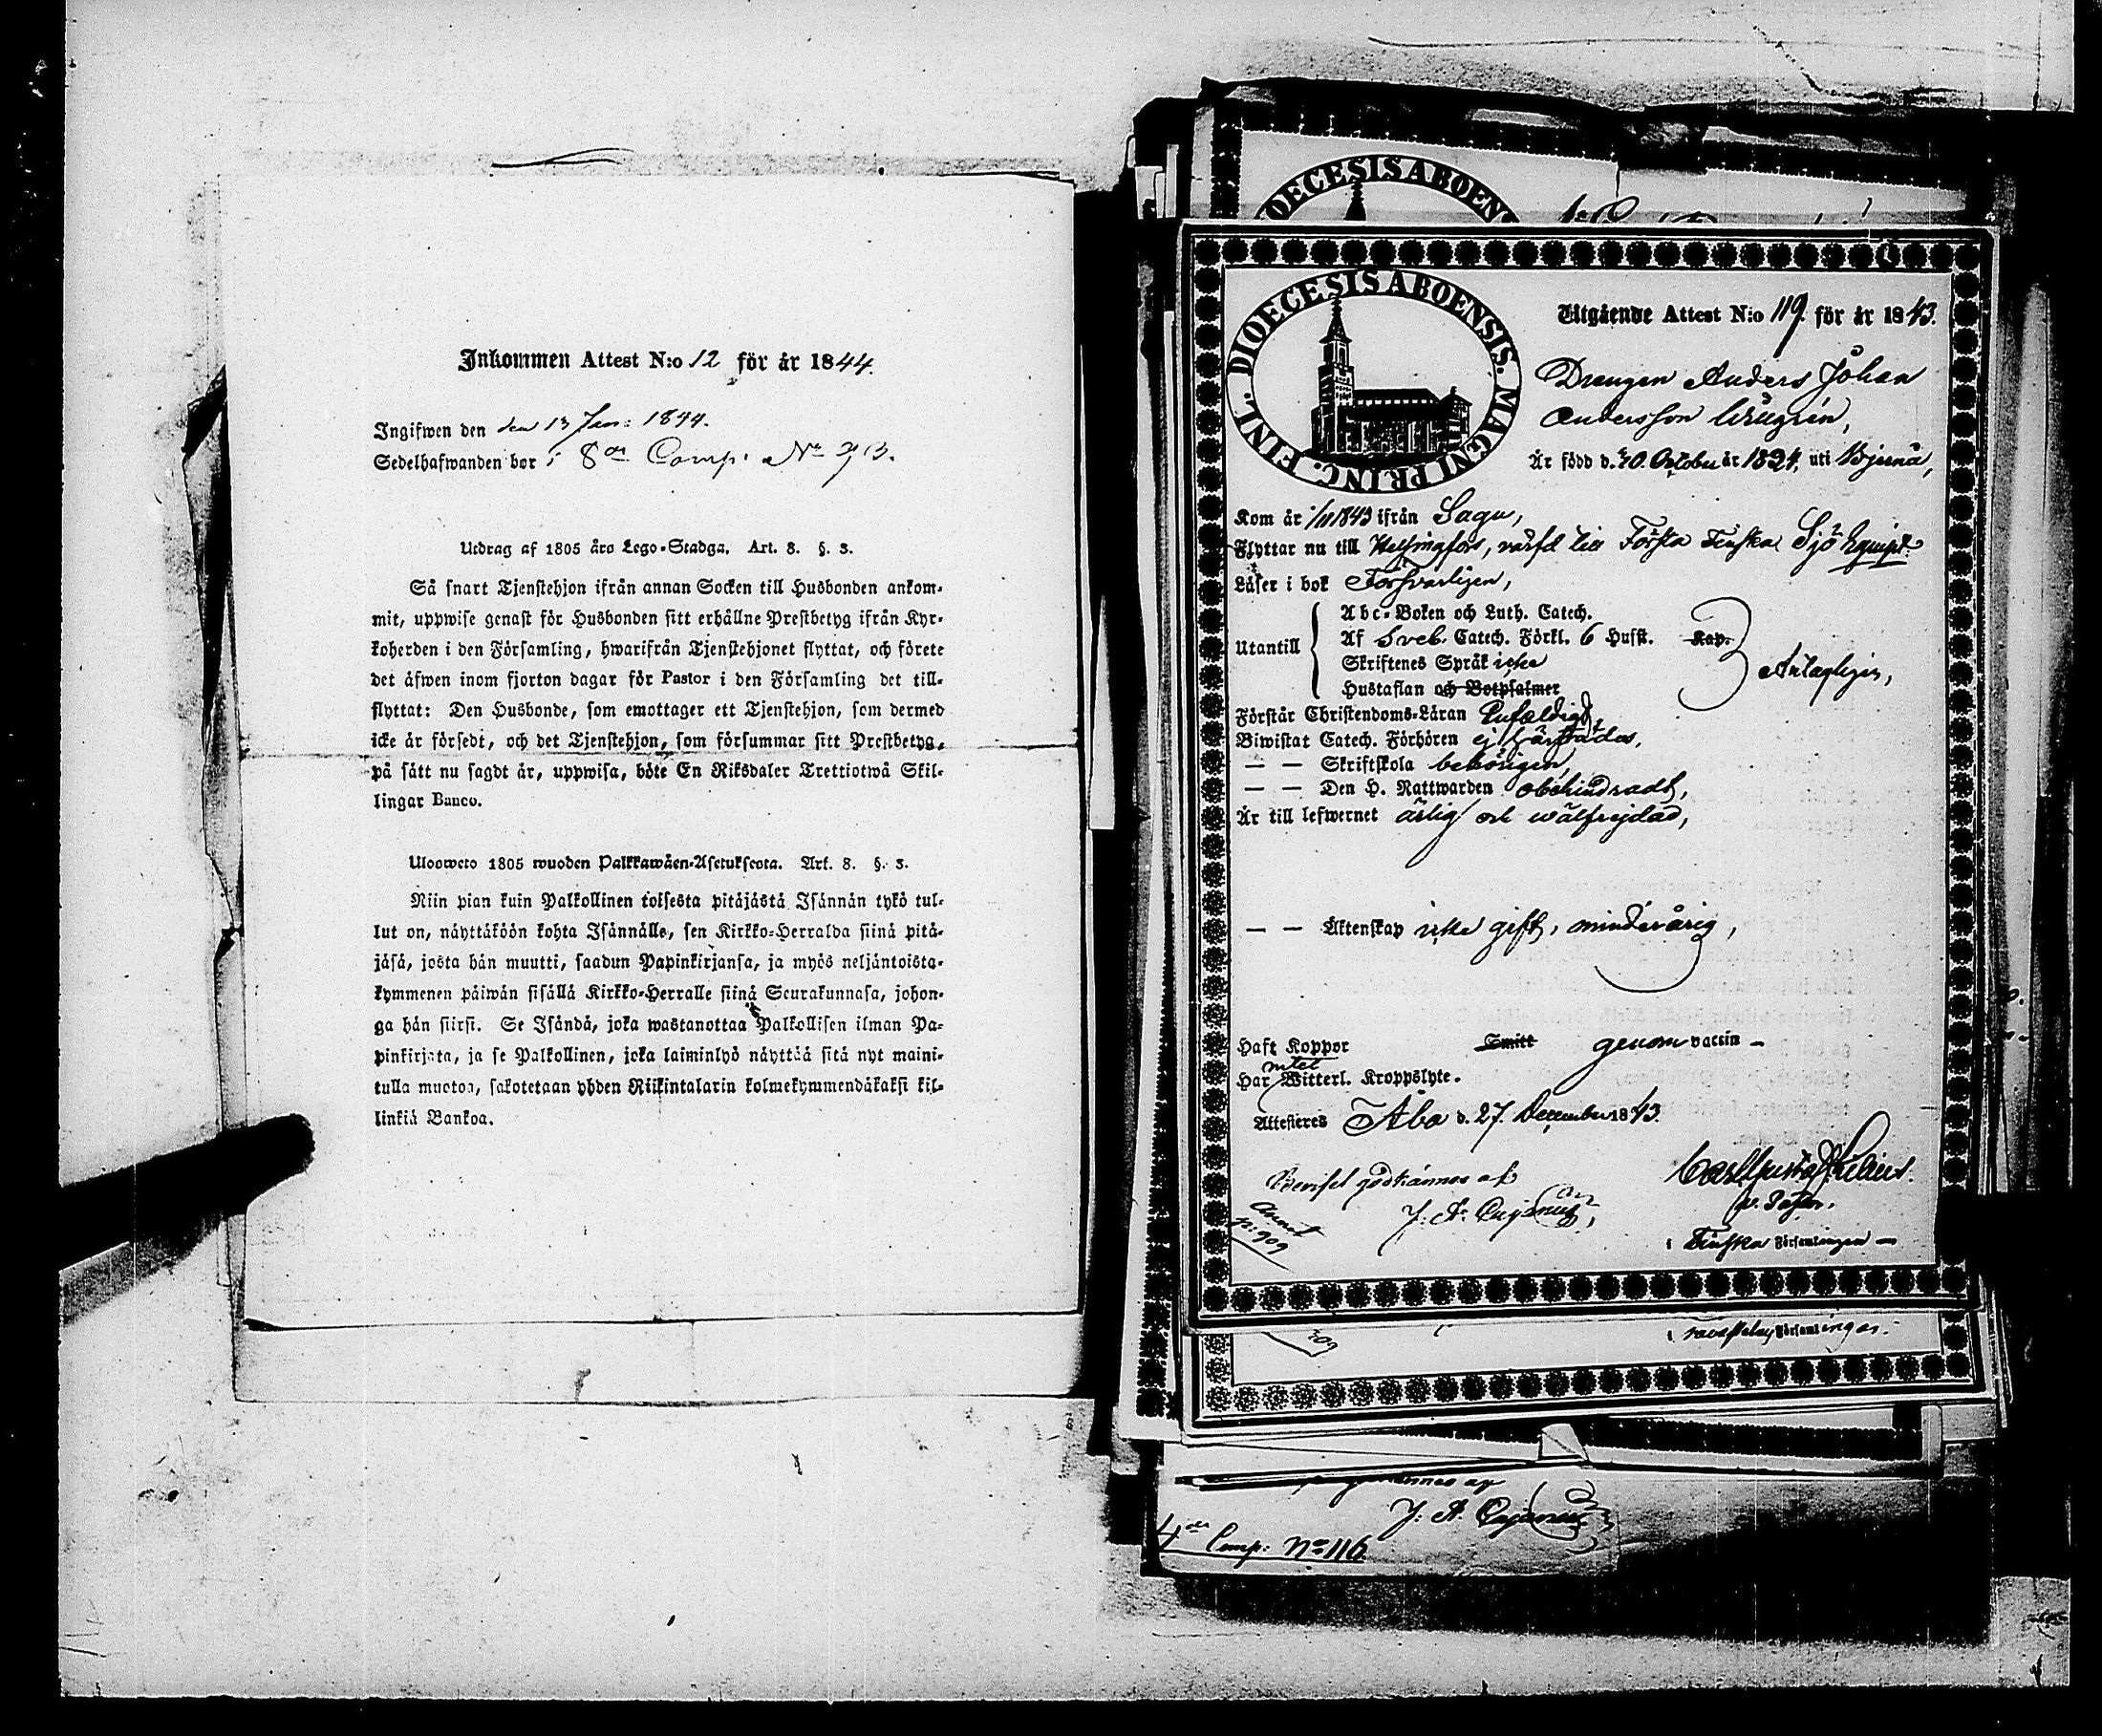 Inkommen Attest N:o 12 för år 1844.
Ingifwen den den 13 Jan: 1844.
Sedelhafwanden bor i 8de Comp. No
Utdrag af 1805 års Lego-Stadga. Art. 8. §. 3.
Så snart Tjenstehjon ifrån annan Socken till Husbonden ankom-
mit, uppwise genast för Husbonden sitt erhållne Prestbetyg ifrån Kyr-
koherden i den Församling, hwarifrån Tjenstehjonet flyttat, och förete
det äfwen inom fjorton dagar för Pastor i den Församling det till-
flyttat: Den Husbonde, som emottager ett Tjenstehjon, som dermed
icke är försedt, och det Tjenstehjon, som försummar sitt Prestbetyg,
på sätt nu sagdt är, uppwisa, böte En Riksdaler Trettiotwå Skil-
lingar Banco.
Ulosweto 1805 wuoden Palkkawäen-Asetuksesta. Art. 8. §. 3.
Niin pian kuin Palkollinen toisesta pitäjästä Isännän tykö tul-
lut on, näyttäköön kohta Isännälle, sen Kirkko-Herralda siinä pitä-
jäsä, josta hän muutti, saadun Papinkirjansa, ja myös neljäntoista-
kymmenen päiwän sisällä Kirkko-Herralle siinä Seurakunnasa, johon-
ga hän siirsi. Se Isändä, joka wastanottaa Palkollisen ilman Pa-
pinkirjata, ja se Palkollinen, joka laiminlyö näyttää sitä nyt maini-
tulla muotoa, sakotetaan yhden Riikintalarin kolmekymmendäkaksi kil-
linkiä Bankoa.
DIOECESIS ABOENS
DIOECESIS ABOENSIS. MAGNI PRINC. FINL.
Utgående Attest N:o 119. för år 1843.
Drengen Anders Johan
Andersson
Är född d. Octobr år 1824, uti Bjerna,
Kom år 1/11 1843 ifrån Sagu,
Flyttar nu till Helsingfors, Första Finska Sjö Equipt
Läser i bok Försvarligen,
Abc-Boken och Luth. Catech.
Utantill Af Sveb. Catech. Förkl. 6 Hufst. Kap.
Skriftenes Språk icke
Antagligen,
Hustaflan och Botpsalmer
Förstår Christendoms-Läran Enfaldigt,
Biwistat Catech. Förhören ej
— — Skriftskola behörigen,
— — Den H. Nattwarden obehindradt,
Är till lefwernet ärlig och wälfrejdad,
— — Äktenskap icke gift, minderårig,
Haft Koppor Smitt genom vaccin –
intet
Har Witterl. Kroppslyte.
Attesteres Åbo d. 27. December 1843.
Bevisel godkännes af
J. A. Cajanus,
Annot
p: 909
Carl Gustaf
v. Pastor.
i Finska Församlingen –
909
i Församlingen.
J. A. Cajanus
4de Comp: No 116